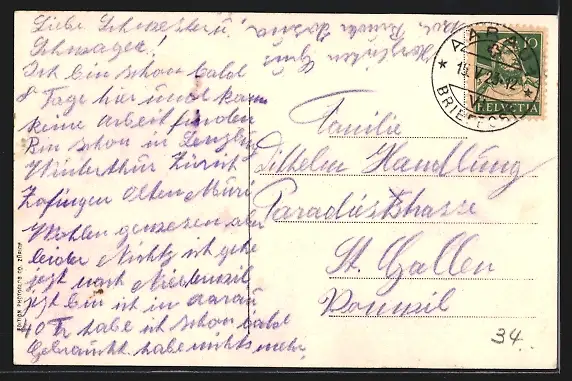 Liebe Schwester u.
Schwager!
Ich bin schon bald
8 Tage hier und kann
keine Arbeit finden
Bin schon in Lenzburg
Winterthur Zürich
Zofingen Olten Muri
Wohlen gewesen aber
leider Nichts ich gehe
jezt nach
jezt bin ich in Aarau
40 Fr habe ich schon bald
Gebraucht habe nichts mehr.
Herzlichen Grus
Bruder
Familie
Wilhelm Handlung
Paradiesstrasse
St. Gallen
Vonwil
34
AARAU
15.V.23.-12
BRIEFPOST
10
HELVETIA